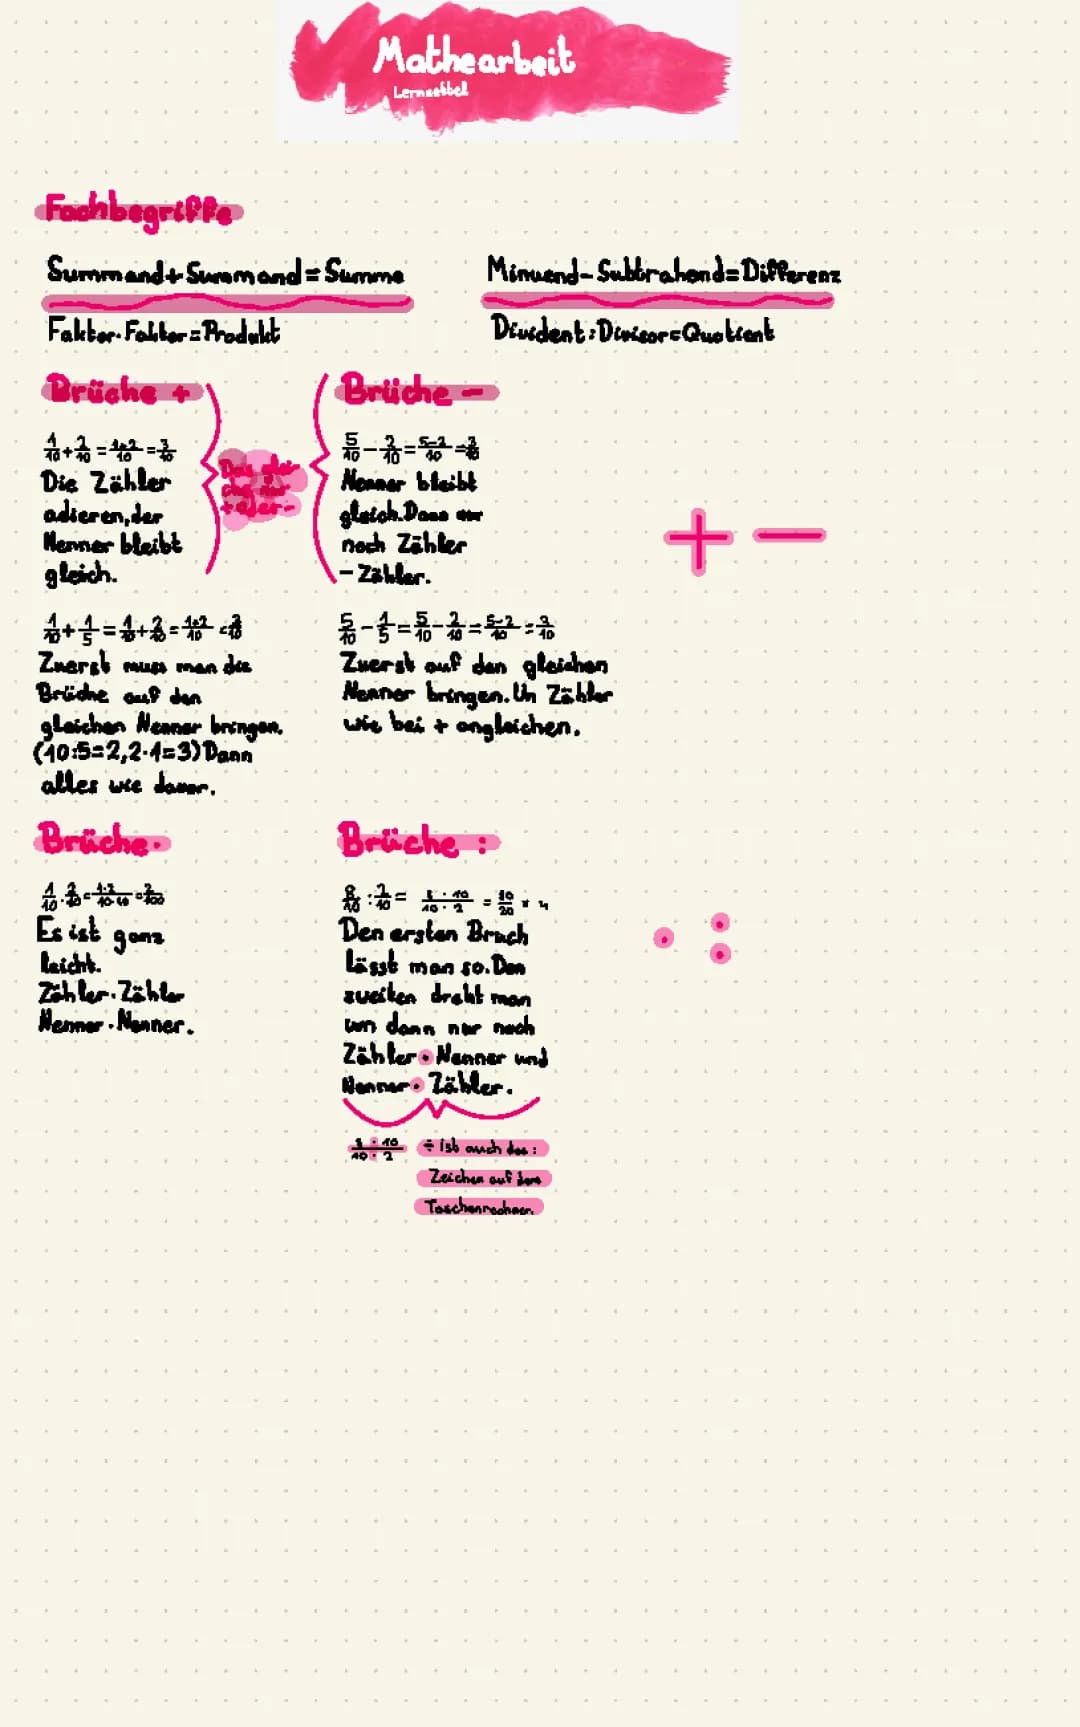 Mathearbeit
Lernzettel
Fachbegriffe
Summand+Summand=Summe
Minuend-Subtrahend=Differenz
Faktor·Faktor=Produkt
Divident:Divisor=Quotient
Brüche +
Brüche -
1/10+2/10=1+2/10=3/10
Die Zähler
adieren,der
Nenner bleibt
gleich.
Das glei-
che nur
+oder-
5/10-2/10=5-2/10=3/10
Nenner bleibt
gleich.Dann nur
noch Zähler
-Zähler.
+ -
1/10+1/5=1/10+2/10=1+2/10=3/10
Zuerst muss man die
Brüche auf den
gleichen Nenner bringen.
(10:5=2,2·1=3)Dann
alles wie davor.
5/10-1/5=5/10-2/10=5-2/10=3/10
Zuerst auf den gleichen
Nenner bringen.Un Zähler
wie bei + angleichen.
Brüche·
Brüche :
1/10·2/10=1·2/10·10=2/100
Es ist ganz
leicht.
Zähler·Zähler
Nenner·Nenner.
8/10:2/10= 8·10/10·2 =80/20 = 4
Den ersten Bruch
lässt man so.Den
zweiten dreht man
um dann nur noch
Zähler·Nenner und
Nenner·Zähler.
· :
8·10/10·2
÷ ist auch das :
Zeichen auf dem
Taschenrechner.